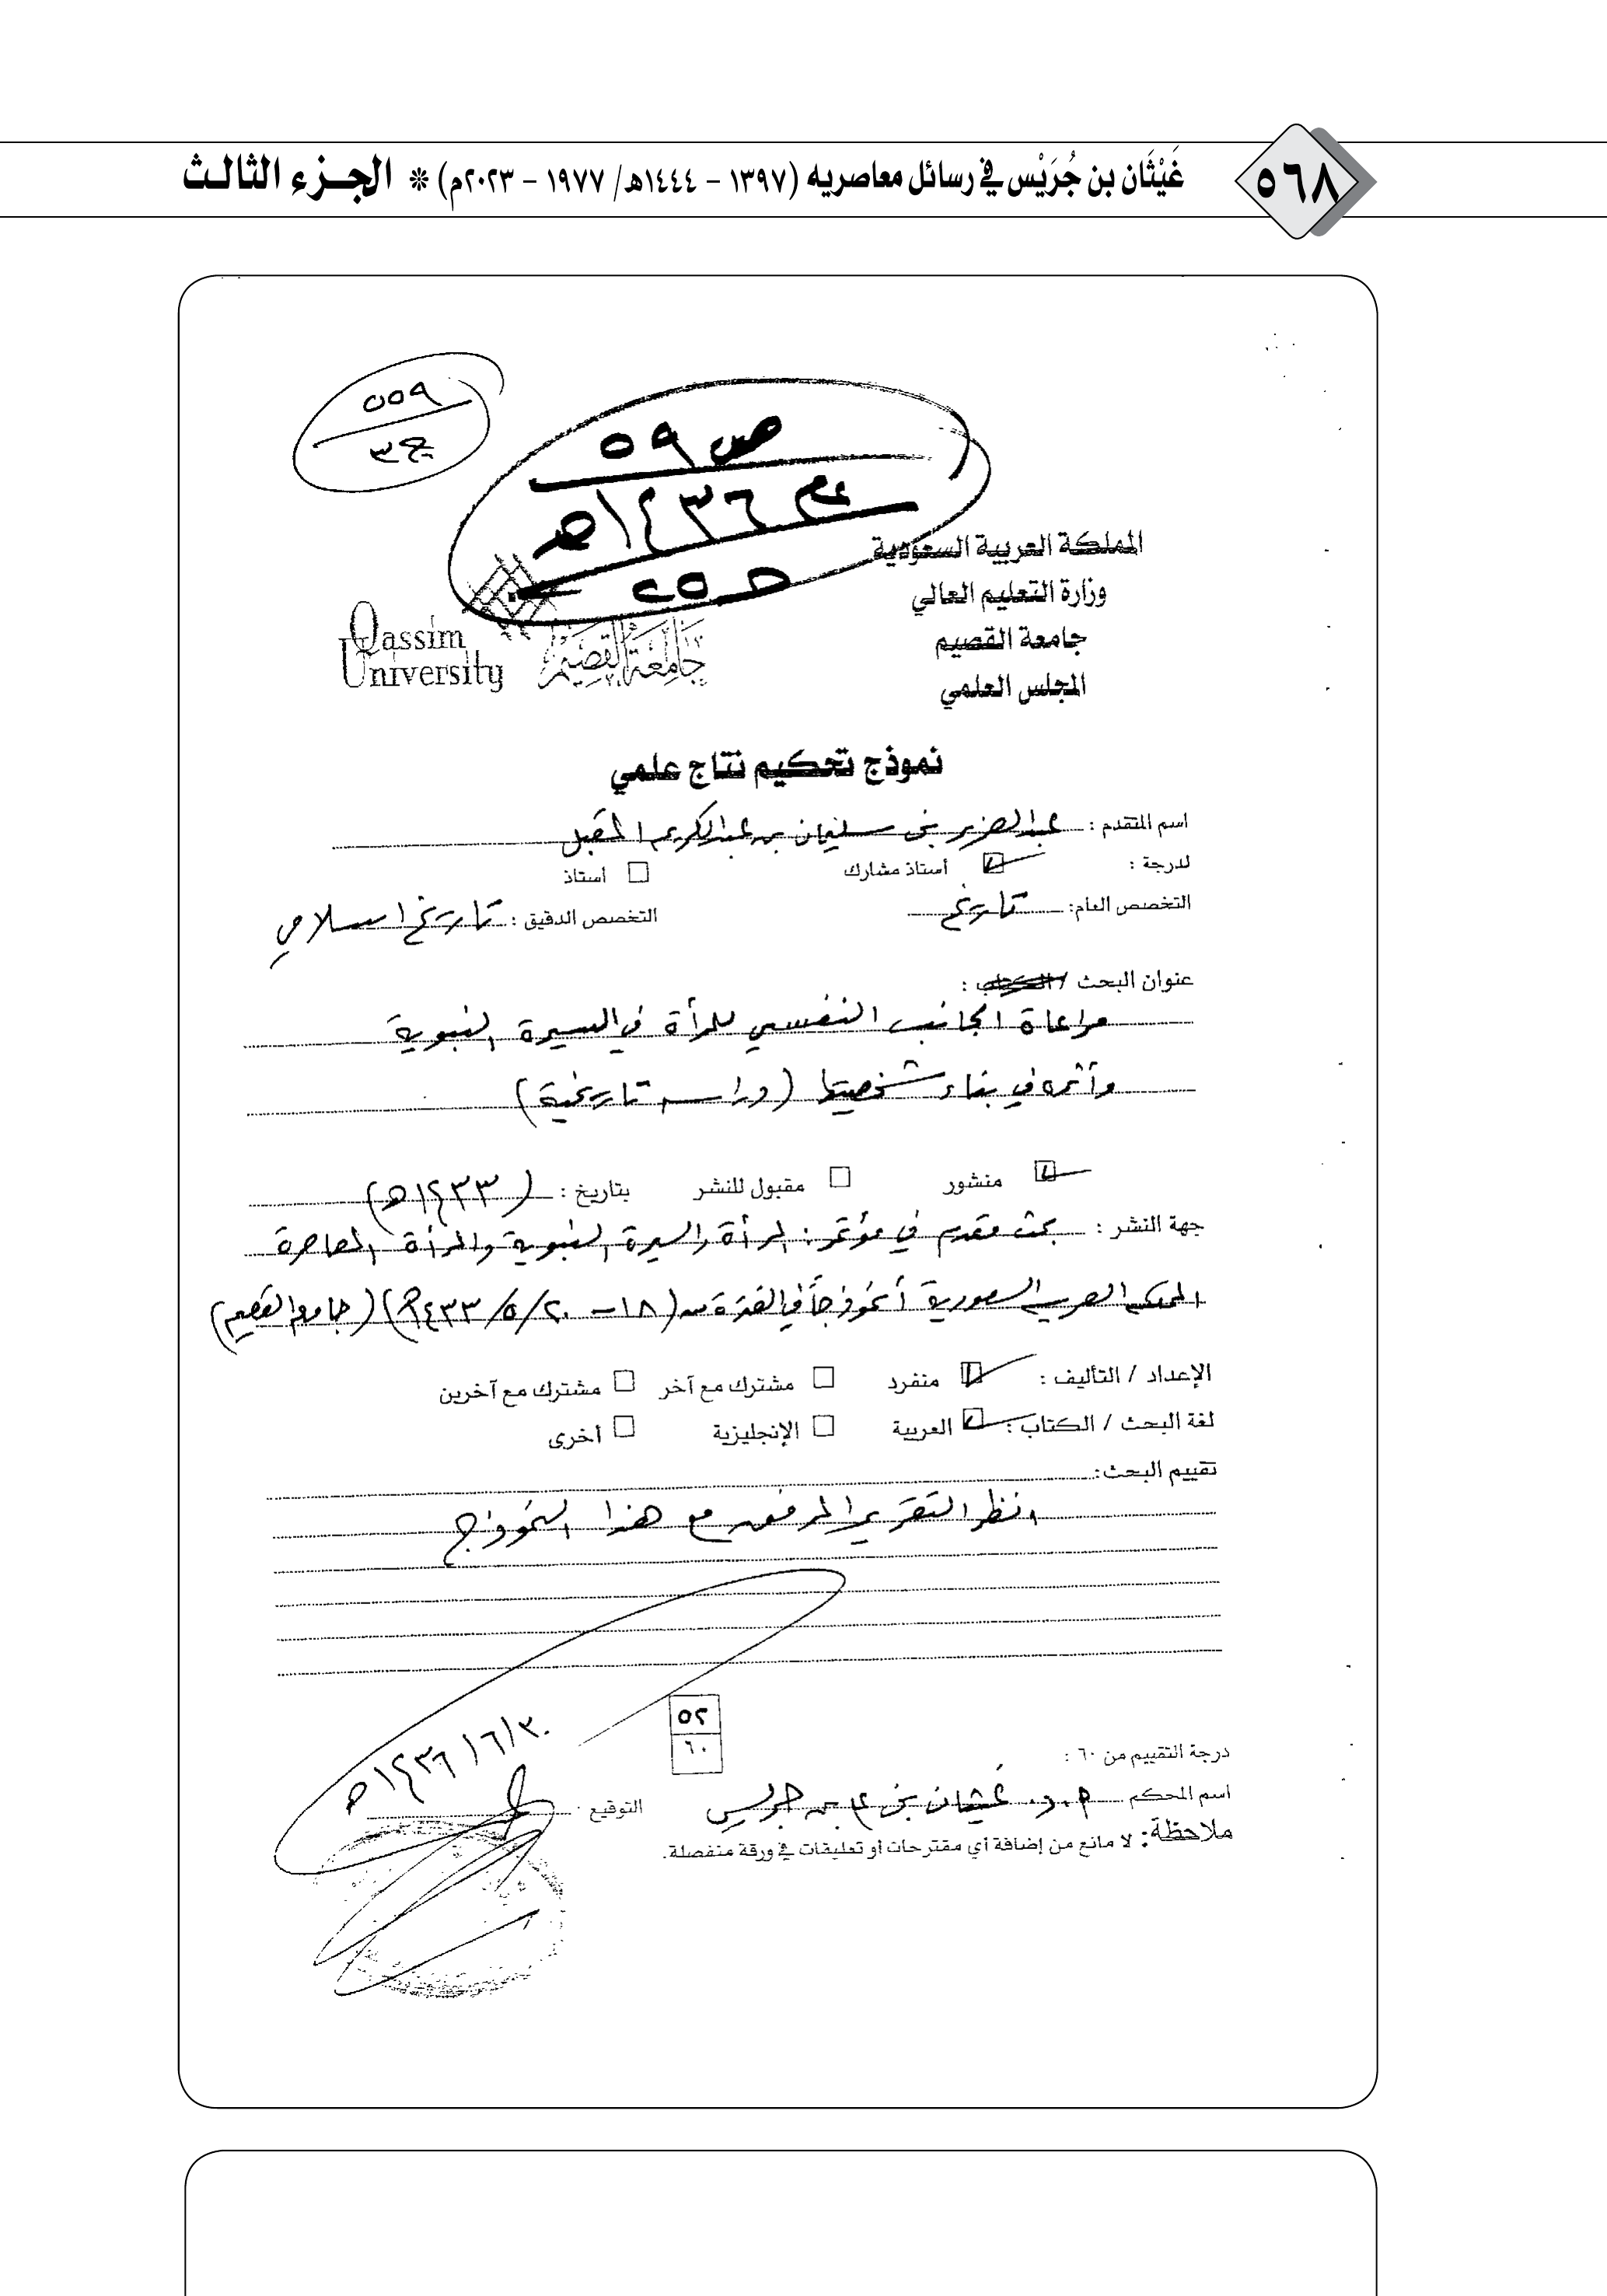 ٥٦٨
غَيْثَان بن جُرَيْس في رسائل معاصريه (١٣٩٧ - ١٤٤٤هـ/ ١٩٧٧ - ٢٠٢٣م) * الجزء الثالث
٥٥٩
ج٣
ص ٥٩
عام ١٤٣٦هـ
المملكة العربية السعودية
وزارة التعليم العالي
جامعة القصيم
المجلس العلمي
Qassim
University
جامعة القصيم
نموذج تحكيم نتاج علمي
اسم المتقدم : عبدالعزيز بن سليمان بن عبدالكريم المقبل
لدرجة : أستاذ مشارك أستاذ
التخصص العام: تاريخ التخصص الدقيق : تاريخ اسلامي
عنوان البحث / الكتاب :
مراعاة الجانب النفسي للمرأة في السيرة النبوية
وأثره في بناء شخصيتها (دراسة تاريخية)
منشور مقبول للنشر بتاريخ : (١٤٣٣هـ)
جهة النشر : بحث مقدم في مؤتمر: المرأة والسيرة النبوية والمرأة المعاصرة
المملكة العربية السعودية أنموذجاً في الفترة من (١٨ - ٢٠/٥/١٤٣٣هـ) (جامعة القصيم)
الإعداد / التأليف : منفرد مشترك مع آخر مشترك مع آخرين
لغة البحث / الكتاب : العربية الإنجليزية أخرى
تقييم البحث:
انظر التقرير المرفق مع هذا النموذج
٥٢
٦٠
٣٠/٦/١٤٣٦هـ
درجة التقييم من ٦٠ :
اسم المحكم أ.د. غيثان بن علي بن جريس التوقيع :
ملاحظة: لا مانع من إضافة أي مقترحات أو تعليقات في ورقة منفصلة.